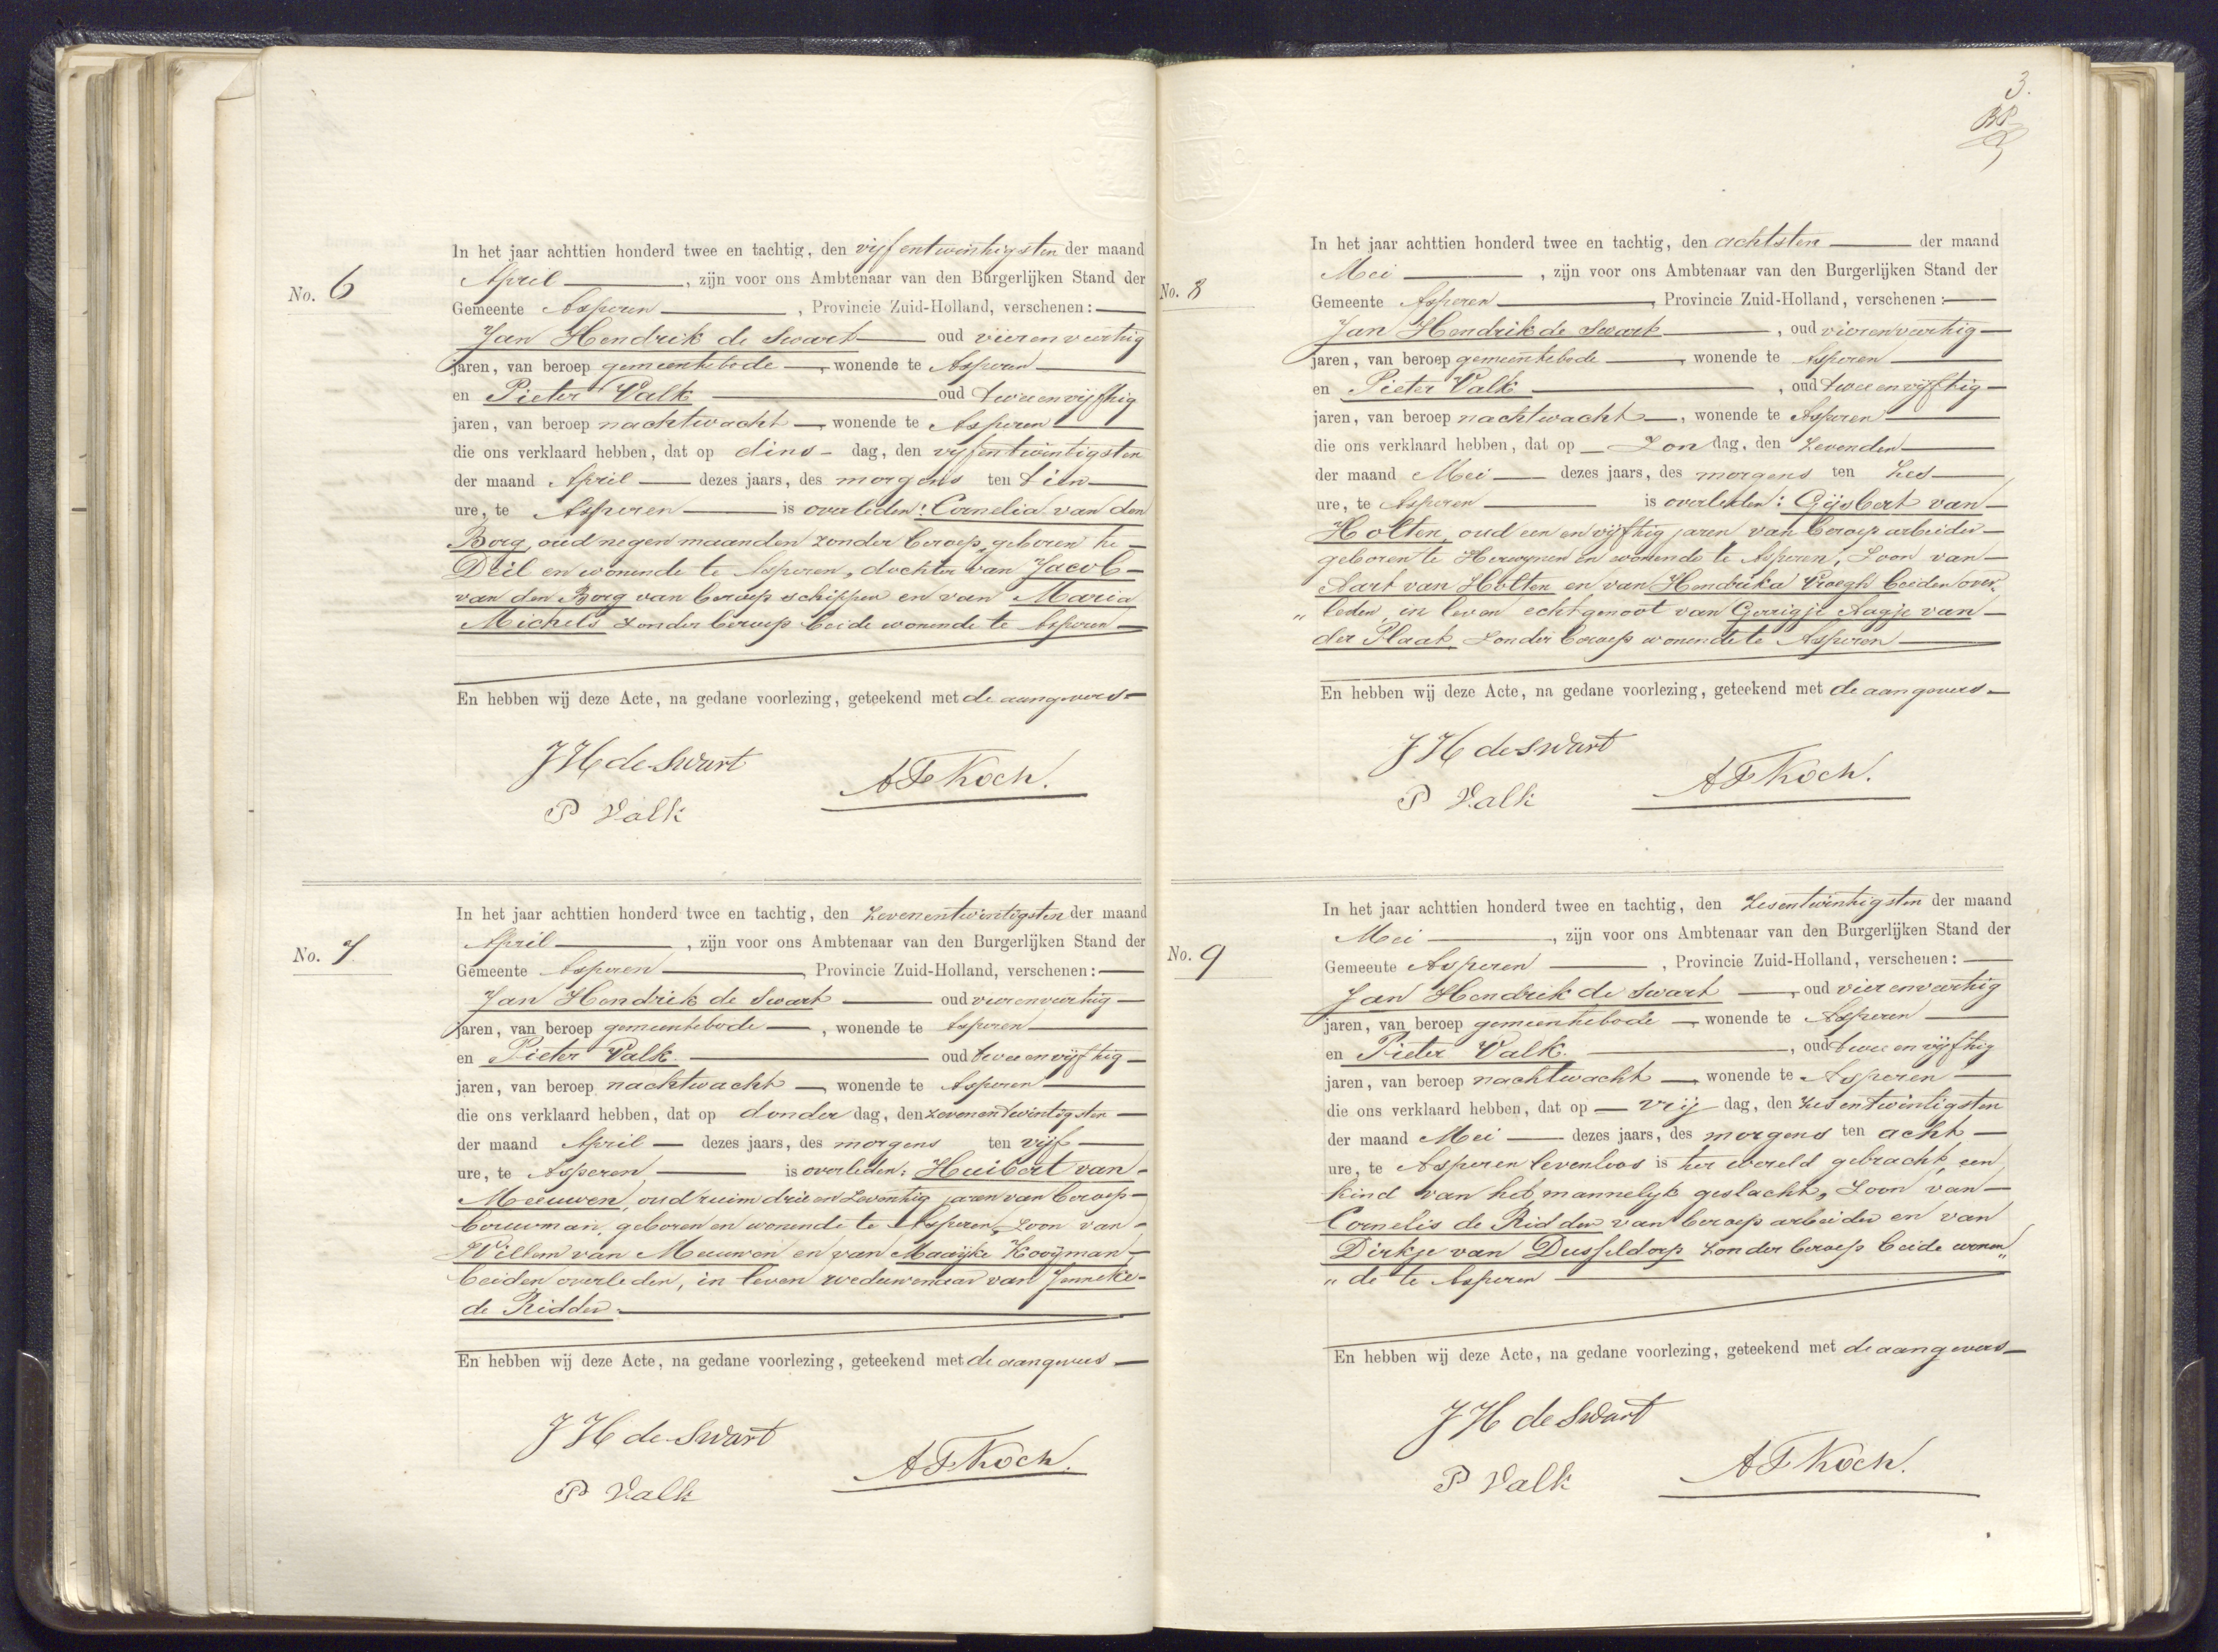 No. 6
In het jaar achttien honderd twee en tachtig, den vijfentwintigsten der maand
April, zijn voor ons Ambtenaar van den Burgerlijken Stand der
Gemeente Asperen, Provincie Zuid-Holland, verschenen:
Jan Hendrik de Swart oud vierenveertig
jaren, van beroep gemeentebode, wonende te Asperen
en Pieter Valk oud tweeenvijftig
jaren, van beroep nachtwacht, wonende te Asperen
die ons verklaard hebben, dat op dins- dag, den vijfentwintigsten
der maand April dezes jaars, des morgens ten tien
ure, te Asperen is overleden: Cornelia van den
Borg, oud negen maanden zonder beroep, geboren te
Deil en wonende te Asperen, dochter van Jacob
van den Borg van beroep schipper en van Maria
Michels zonder beroep beide wonende te Asperen
En hebben wij deze Acte, na gedane voorlezing, geteekend met de aangevers
JH de Swart
AF Koch.
P Valk
No. 7.
In het jaar achttien honderd twee en tachtig, den zevenentwintigsten der maand
April, zijn voor ons Ambtenaar van den Burgerlijken Stand der
Gemeente Asperen, Provincie Zuid-Holland, verschenen:
Jan Hendrik de Swart oud vierenveertig
jaren, van beroep gemeentebode, wonende te Asperen
en Pieter Valk. oud tweeenvijftig
jaren, van beroep nachtwacht, wonende te Asperen
die ons verklaard hebben, dat op donder dag, den zevenentwintigsten
der maand April dezes jaars, des morgens ten vijf
ure, te Asperen is overleden: Huibert van
Meeuwen, oud ruim drieenzeventig jaren van beroep
bouwman, geboren en wonende te Asperen, zoon van
Willem van Meeuwen en van Maaijke Kooijman
beiden overleden, in leven weduwenaar van Jenneke
de Ridder.
En hebben wij deze Acte, na gedane voorlezing, geteekend met de aangevers
JH de Swart
AF Koch.
P Valk
3.
No. 8
In het jaar achttien honderd twee en tachtig, den achtsten der maand
Mei, zijn voor ons Ambtenaar van den Burgerlijken Stand der
Gemeente Asperen, Provincie Zuid-Holland, verschenen:
Jan Hendrik de Swart, oud vierenveertig
jaren, van beroep gemeentebode, wonende te Asperen
en Pieter Valk, oud tweeenvijftig
jaren, van beroep nachtwacht, wonende te Asperen
die ons verklaard hebben, dat op Zon dag, den Zevenden
der maand Mei dezes jaars, des morgens ten Zes
ure, te Asperen is overleden: Gijsbert van
Holten, oud een en vijftig jaren van beroep arbeider
geboren te Herwynen en wonende te Asperen, Zoon van
Aart van Holten en van Hendrika Vroegh beiden over„
„leden, in leven echtgenoot van Gerrigje Aagje van
der Plaak Zonder beroep wonende te Asperen
En hebben wij deze Acte, na gedane voorlezing, geteekend met de aangevers
JH de Swart
AF Koch.
P Valk
No. 9
In het jaar achttien honderd twee en tachtig, den Zesentwintigsten der maand
Mei, zijn voor ons Ambtenaar van den Burgerlijken Stand der
Gemeente Asperen, Provincie Zuid-Holland, verschenen:
Jan Hendrik de Swart, oud vierenveertig
jaren, van beroep gemeentebode, wonende te Asperen
en Pieter Valk., oud tweeenvijftig
jaren, van beroep nachtwacht, wonende te Asperen
die ons verklaard hebben, dat op vrij dag, den Zesentwintigsten
der maand Mei dezes jaars, des morgens ten acht
ure, te Asperen levenloos is ter wereld gebracht, een
kind van het mannelijk geslacht, Zoon van
Cornelis de Ridder van beroep arbeider en van
Dirkje van Dusseldorp Zonder beroep beide wonen„
„de te Asperen
En hebben wij deze Acte, na gedane voorlezing, geteekend met de aangevers
JH de Swart
AF Koch.
P Valk